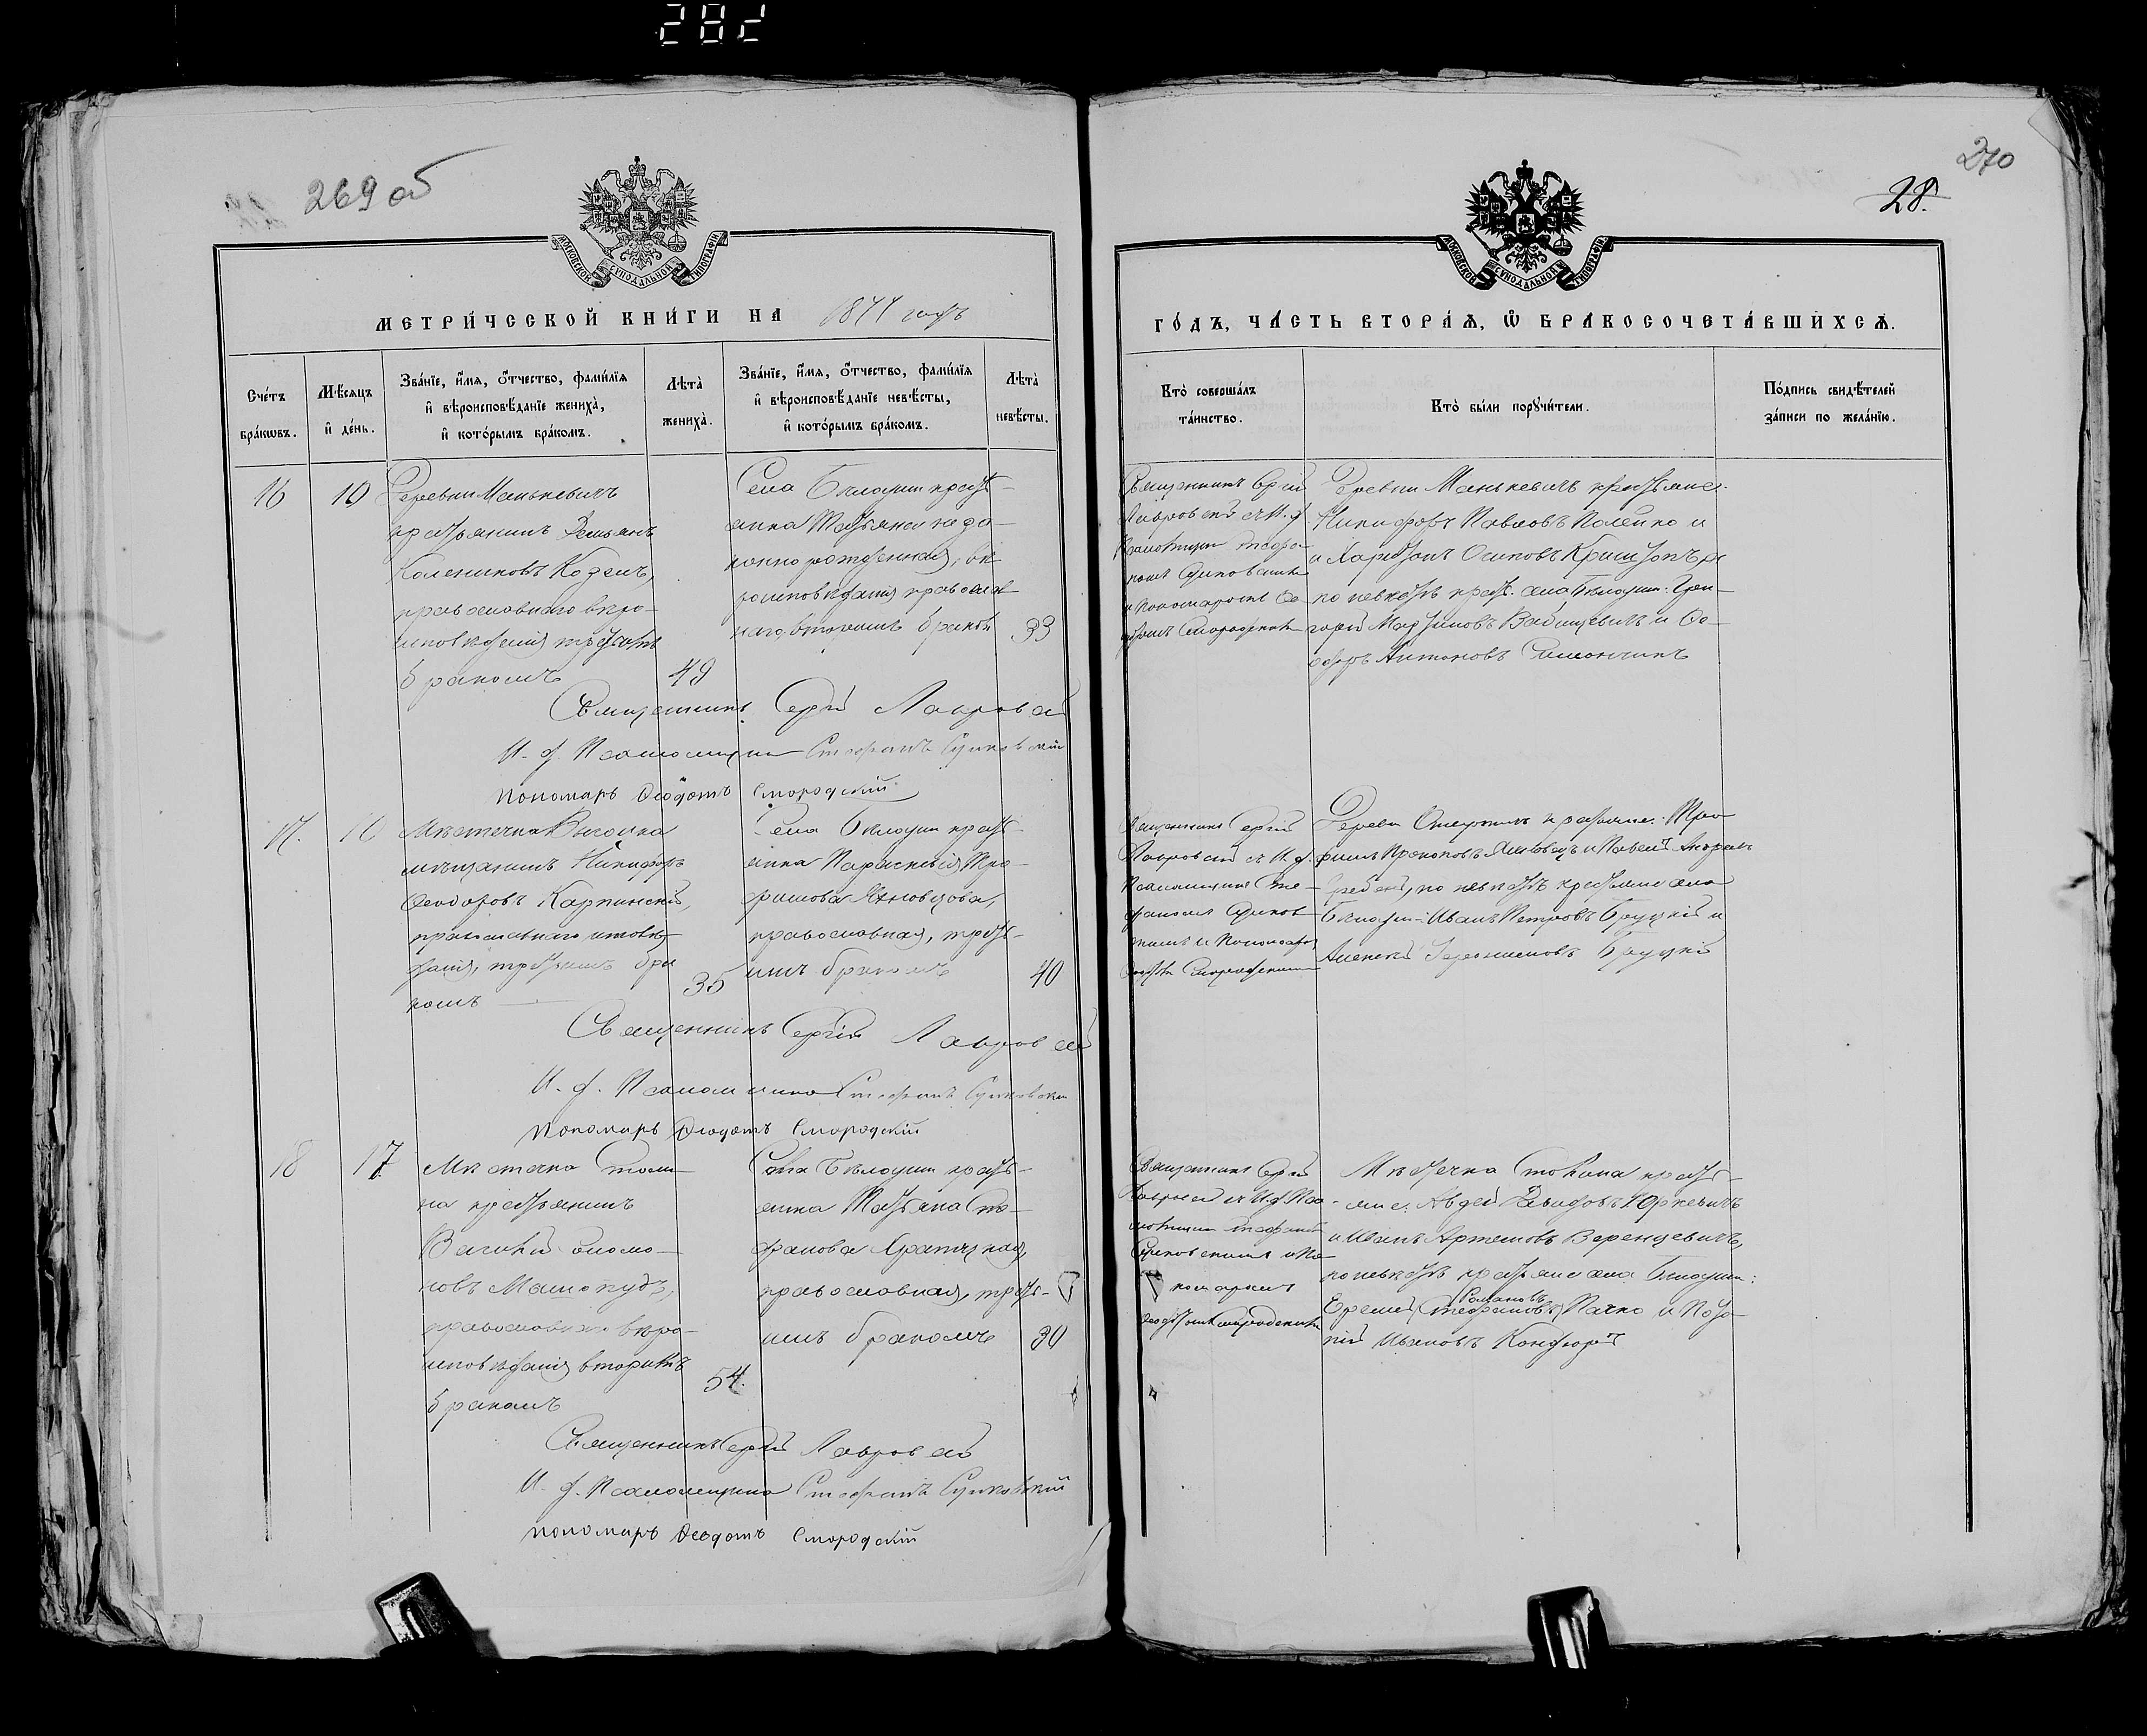 282
269 об
МОСКОВСКОЙ СУНОДАЛЬНОЙ ТИПОГРАФІИ
МЕТРИ́ЧЕСКОЙ КНИ́ГИ НА 1871 годъ
Сче́тъ бра́кωвъ.
Мѣ́сяцъ и҆ де́нь.
Зва́нїе, и҆́мѧ, ѻ҆́тчество, фами́лїѧ и҆ вѣроисповѣ́данїе жениха̀, и҆ кото́рымъ бра́комъ.
Лѣта̀ жениха̀.
Зва́нїе, и҆́мѧ, ѻ҆́тчество, фами́лїѧ и҆ вѣроисповѣ́данїе невѣ́сты, и҆ кото́рымъ бра́комъ.
Лѣта̀ невѣ́сты.
16
10
Деревни Манькевичъ
крестьянинъ Демьянъ
Колениковъ Козелъ,
православнаго вѣро-
исповѣданія третьимъ
бракомъ
49
Села Бѣлоуши кресть-
янка Татьяна неза-
конно рожденная, вѣ
роисповѣданія православ
наго, вторымъ бракомъ
33
Священникъ Сергій Лавровскій
И. д. Псаломщика Стефанъ Сулковскій
Пономарь Ѳеодотъ Смородскій
17.
10
Мѣстечка Высоцка
мѣщанинъ Никифоръ
Ѳеодоровъ Карпинскій,
православнаго исповѣ-
данія, третьимъ бра
комъ
35
Села Бѣлоуши кресть-
янка Параскевія Тро-
фимова Яновцова,
православная, треть-
имъ бракомъ
40
Священникъ Сергій Лавровскій
И. д. Псаломщика Стефанъ Сулковскій
Пономарь Ѳеодотъ Смородскій
18
17
Мѣстечка Столи-
на крестьянинъ
православнаго вѣро-
исповѣданія вторымъ
бракомъ
54.
Села Бѣлоуши кресть-
янка Татьяна Сте-
фанова
православная, треть-
имъ бракомъ
30
Священникъ Сергій Лавровскій
И. д. Псаломщика Стефанъ Сулковскій
Пономарь Ѳеодотъ Смородскій
270
28.
МОСКОВСКОЙ СУНОДАЛЬНОЙ ТИПОГРАФІИ
ГО́ДЪ, ЧА́СТЬ ВТОРА́Ѧ, Ѽ БРАКОСОЧЕТА́ВШИХСѦ.
Кто̀ соверша́лъ та́инство.
Кто̀ бы́ли порꙋчи́тели.
По́дпись свидѣ́телей за́писи по жела́нію.
Священникъ Сергій
Лавровскій съ И. д
Псаломщика Стефа-
номъ Сулковскимъ
и Пономаремъ Ѳео
дотомъ Смородскимъ
Деревни Манькевичъ крестьяне:
Никифоръ Павловъ Полейко и
и Харитонъ Осиповъ
по невѣстѣ крест. села Бѣлоуши: Гри-
горій Мартиновъ Вабищевичъ и Ѳе-
одоръ Антоновъ Симончикъ
Священникъ Сергій
Лавровскій съ И. д.
Псаломщика Сте-
фаномъ Сулков
скимъ и Пономаремъ
Ѳеодотомъ Смородскимъ
Деревни крестьяне: Тро
фимъ Прокоповъ Яновецъ и Павелъ Андреевъ
по невѣстѣ крестьяне села
Бѣлоуши: Иванъ Петровъ Бруцкій и
Алексѣй Герасимовъ Бруцкій
Священникъ Сергій
Лавровскій съ И. д. Пса-
ломщика Стефаномъ
Сулковскимъ и По-
номаремъ
Ѳеодотомъ Смородскимъ
Мѣстечка Столина кресть-
яне: Авдей Давидовъ Юркевичъ
и Иванъ Артемовъ Веренцевичъ,
по невѣстѣ крестьяне села Бѣлоуши:
Романовъ
Еремѣй (Стефановъ) Пачко и Про-
кій Ивановъ